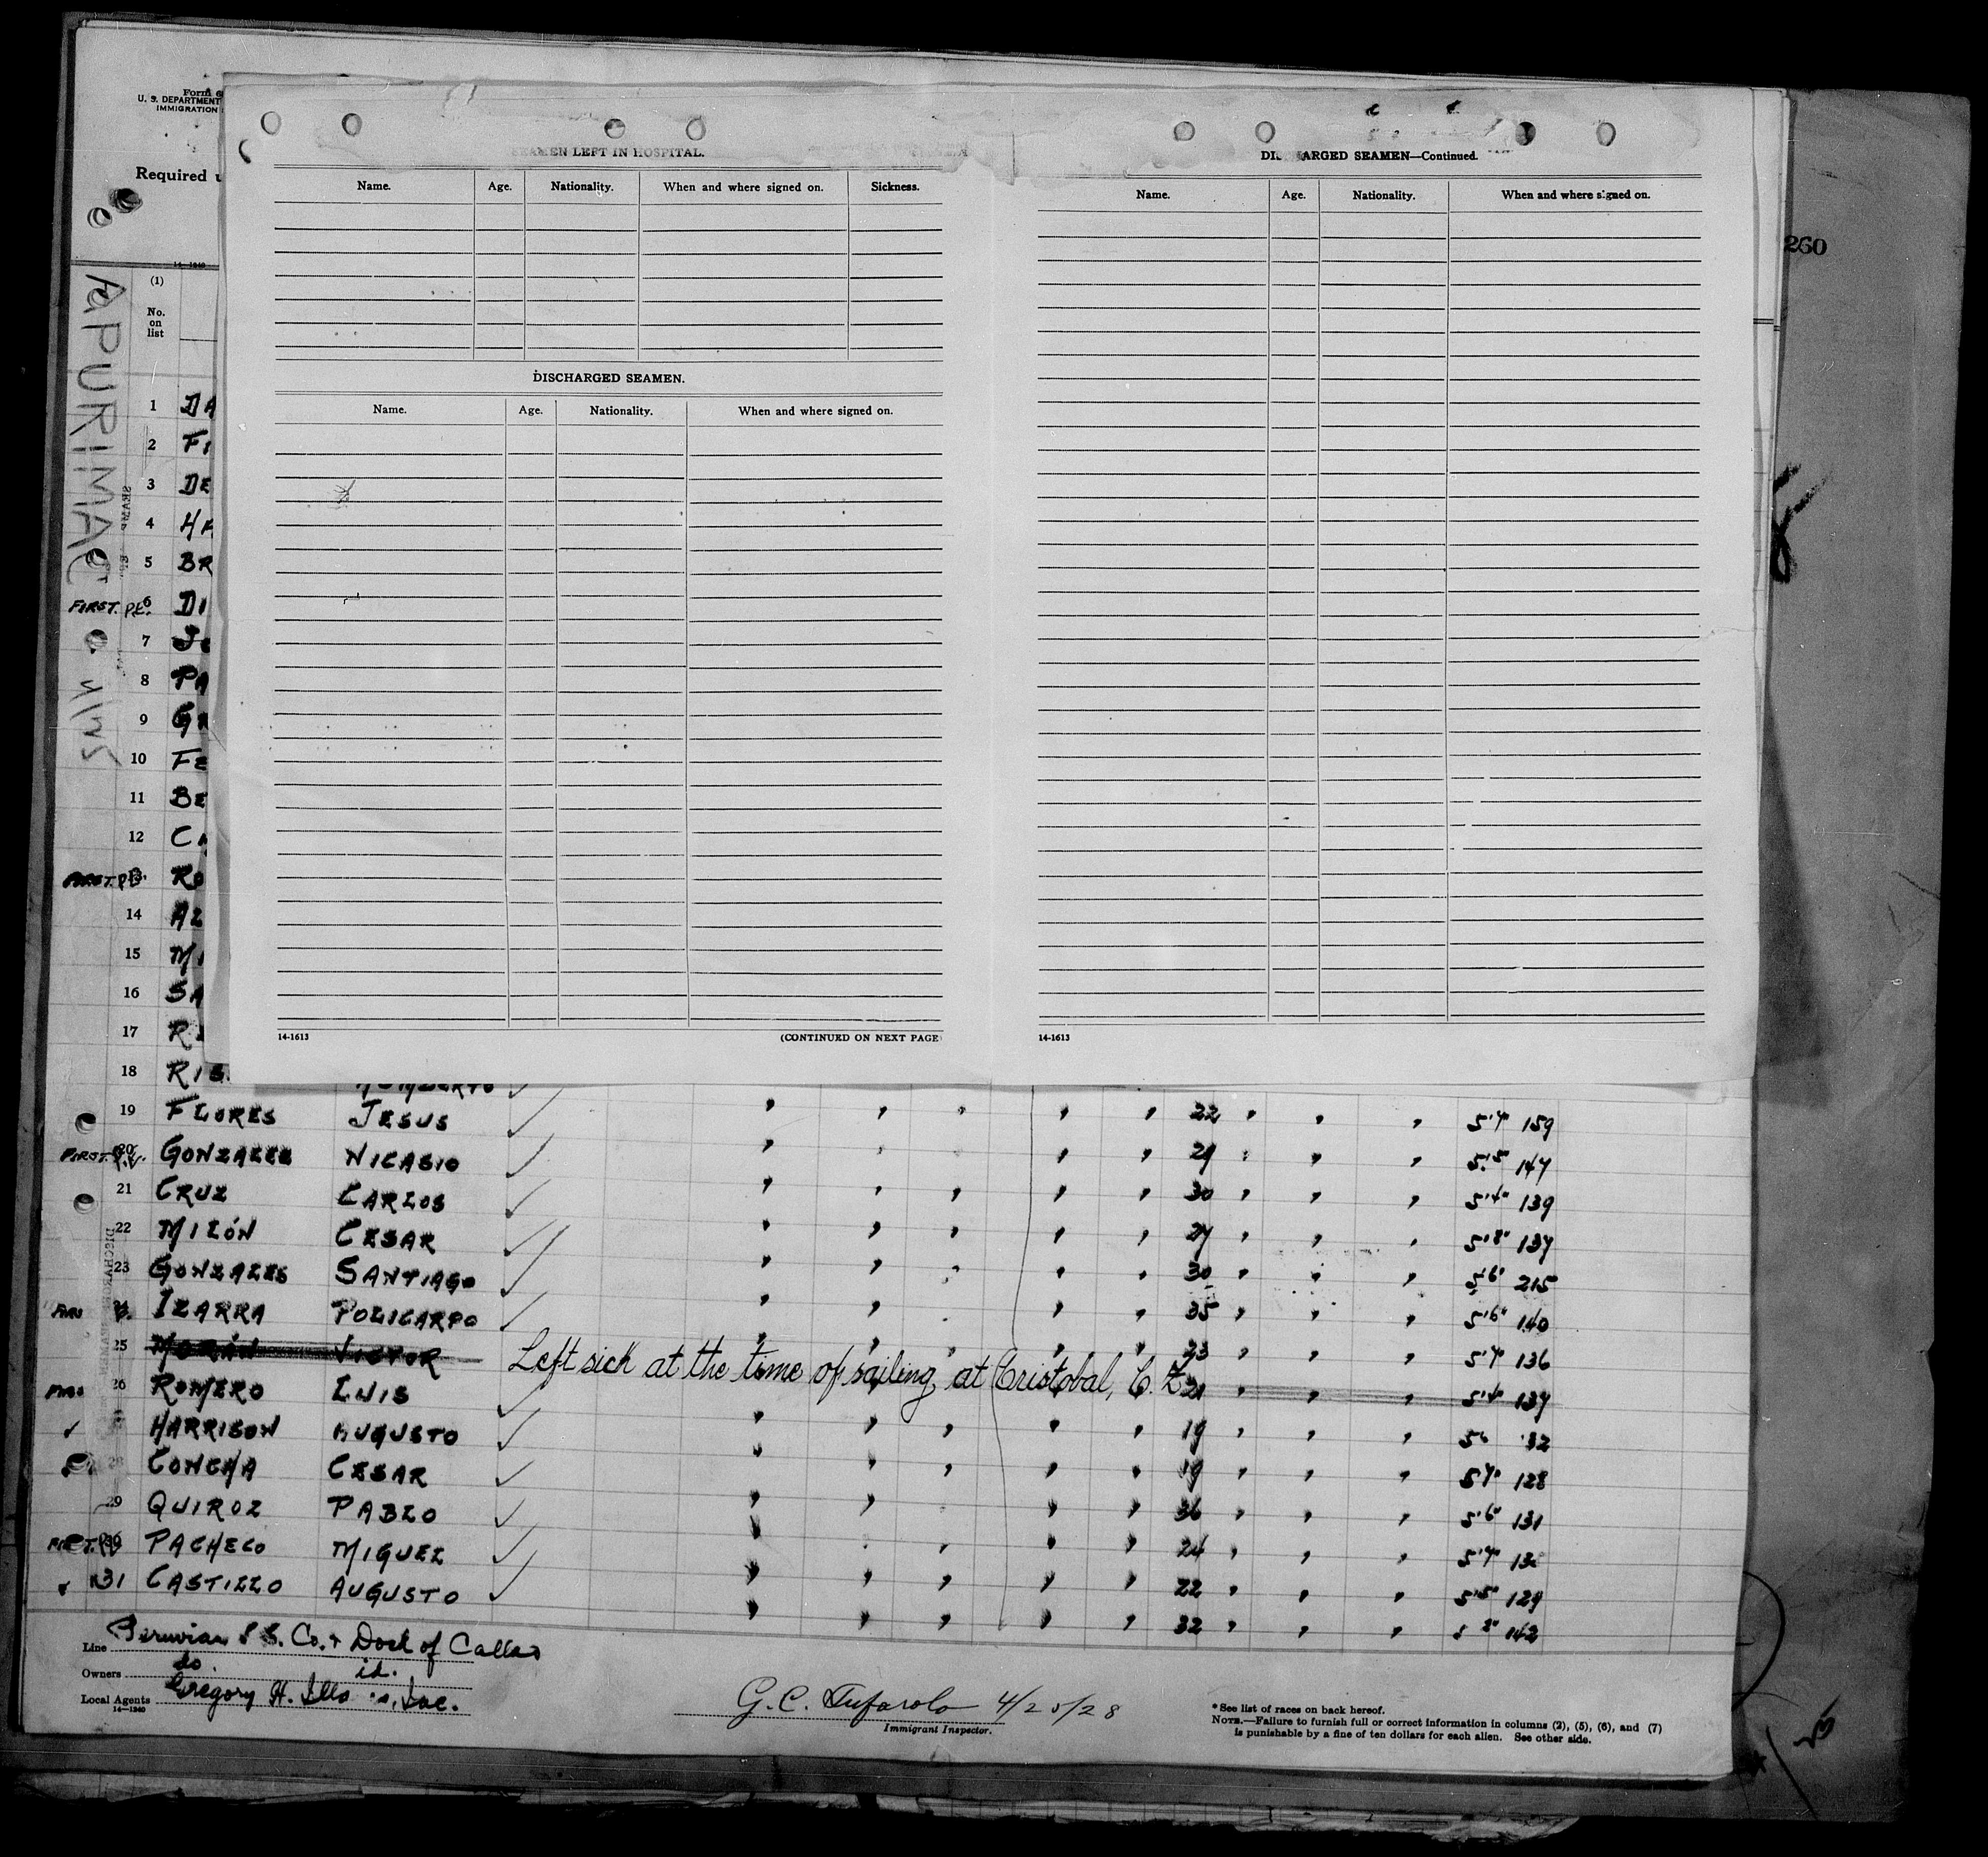 Form
U. S. DEPARTMENT
IMMIGRATION
Required
260
14-1240
(1)
No.
on
list
APURIMAC
SEAMEN LEFT IN HOSPITAL.
Name. Age. Nationality. When and where signed on. Sickness.
DISCHARGED SEAMEN.
Name. Age. Nationality. When and where signed on.
14-1613 (CONTINUED ON NEXT PAGE
DISCHARGED SEAMEN—Continued.
Name. Age. Nationality. When and where signed on.
14-1613
1 DA
2 FI
3 DE
4 HA
5 BR
FIRST. P.E. 6 DI
7
8 PA
9 GR
10 FE
11 BE
12 CA
FIRST. 13 RO
14 AL
15 MI
16 SA
17
18 RIS HUMBERTO
19 FLORES JESUS " " " " " 22 " " " 5'7" 159
FIRST. 20 GONZALEZ NICASIO " " " " " 29 " " " 5'5" 147
21 CRUZ CARLOS " " " " " 30 " " " 5'4" 139
22 MILÓN CESAR " " " " " 27 " " " 5'8" 137
23 GONZALES SANTIAGO " " " " " 30 " " " 5'6" 215
24 IZARRA POLICARPO " " " " " 35 " " " 5'6" 140
25 MORÁN VICTOR " " " " " 23 " " " 5'7" 136
Left sick at the time of sailing, at Cristobal, C. Z.
26 ROMERO LUIS 21 " " " 5'4" 137
HARRISON AUGUSTO " " " " " 19 " " "
28 CONCHA CESAR " " " " " 19 " " " 57" 128
29 QUIROZ PABLO " " " " 36 " " " 5'6" 131
PACHECO MIGUEL " " " " " 24 " " " 5'7"
31 CASTILLO AUGUSTO " " " " " 22 " " " 5'5" 129
" " " " " 32 " " " 142
Line Peruvian S S. Co. & Dock of Callao
Owners do. id.
Local Agents Gregory H. Inc.
14-1240
G. C. Tufarolo 4/25/28
Immigrant Inspector.
* See list of races on back hereof.
NOTE.—Failure to furnish full or correct information in columns (2), (5), (6), and (7)
is punishable by a fine of ten dollars for each alien. See other side.